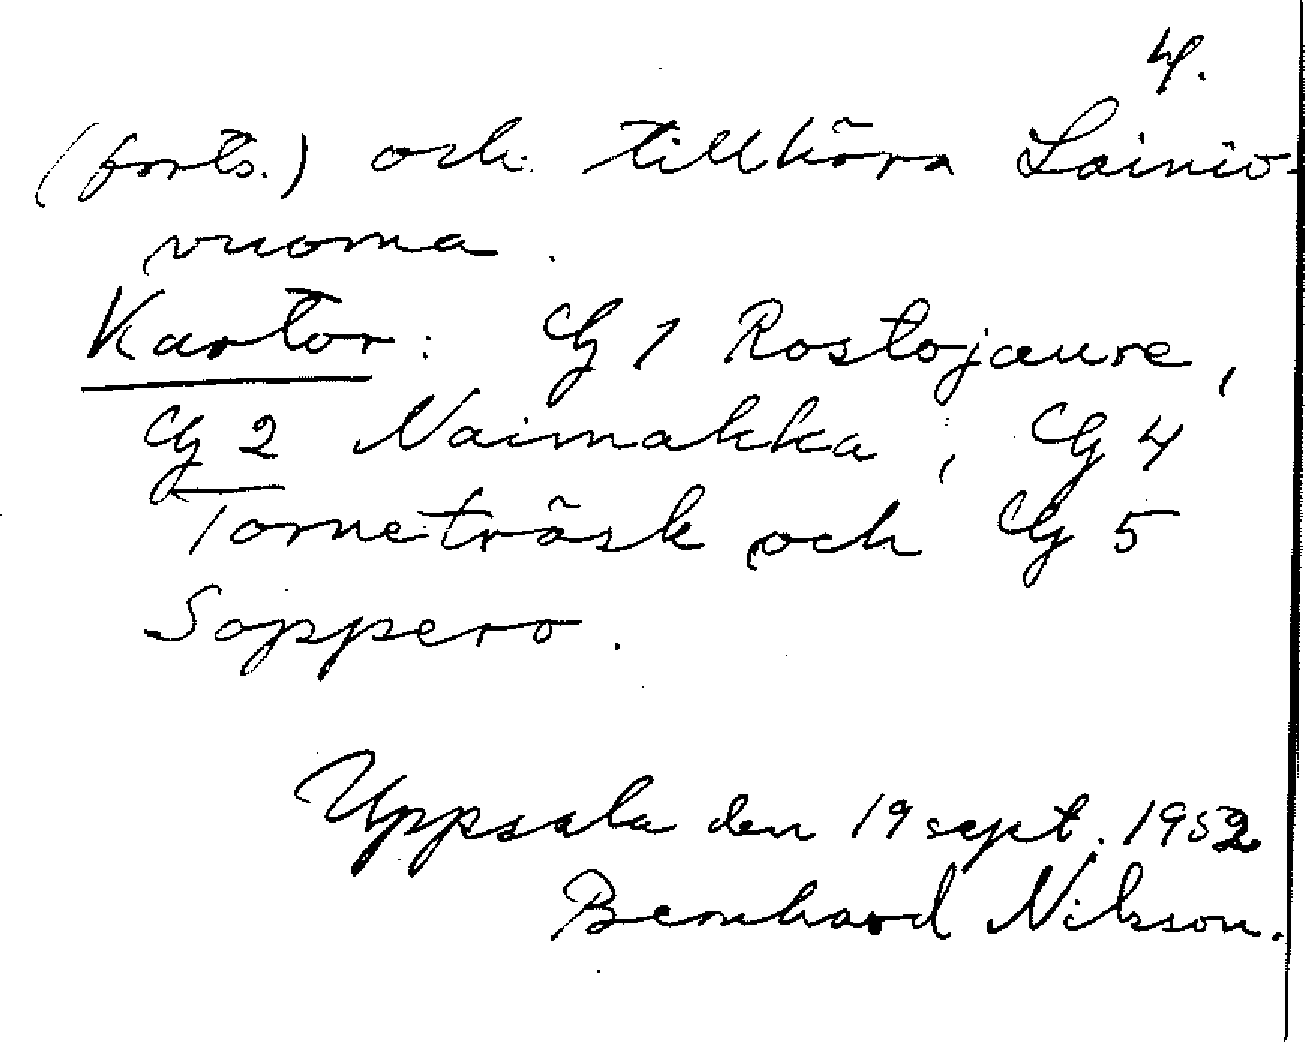 4.
(forts.) och tillhöra Lainio-
vuoma.
Kartor: G 1 Rostojaure,
G 2 Naimakka, G 4
Torneträsk och G 5
Soppero.
Uppsala den 19 sept. 1952
Bernhard Nilsson.